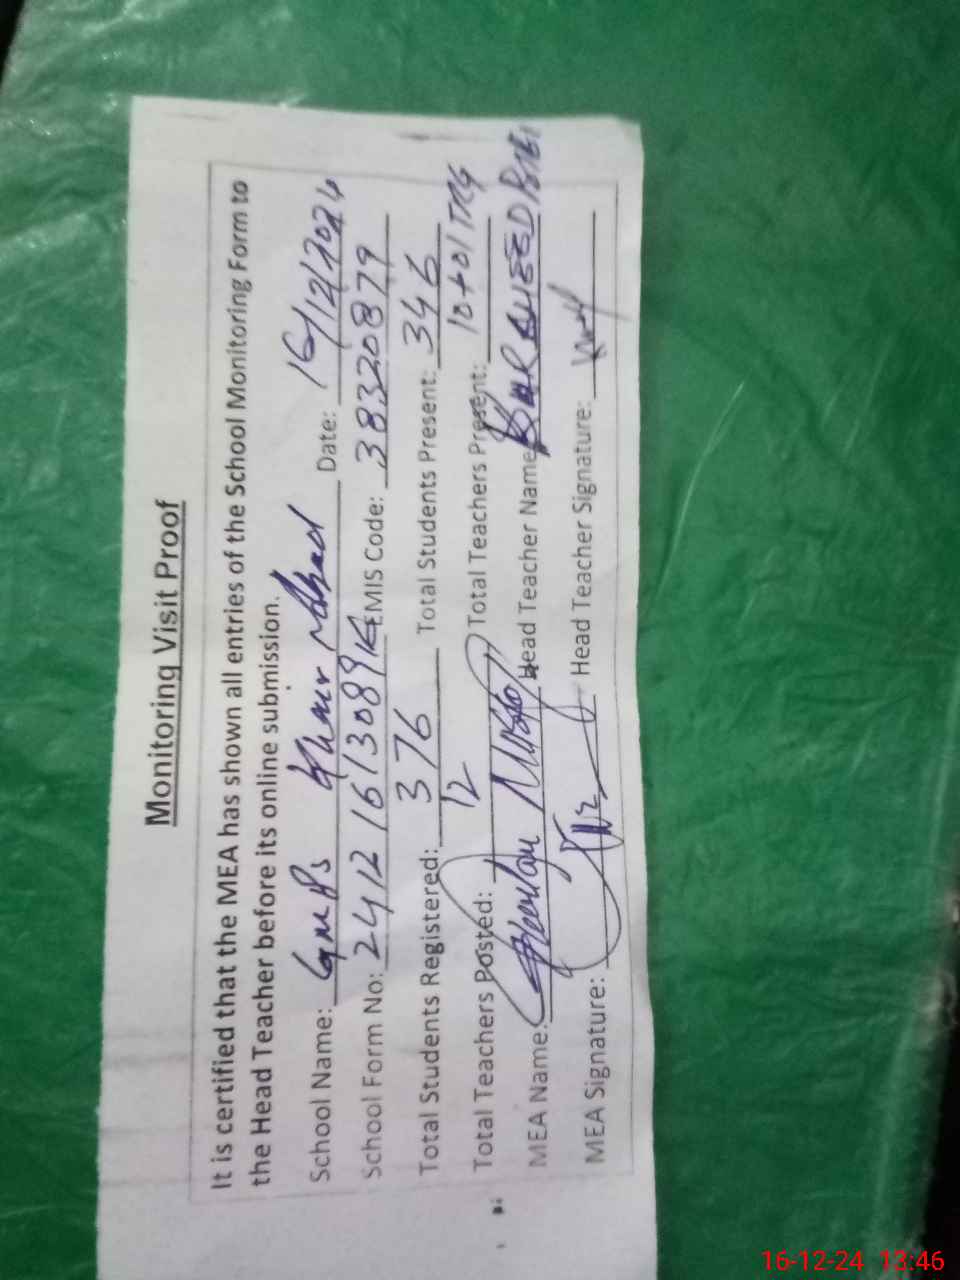 Monitoring Visit Proof
It is certified that the MEA has shown all entries of the School Monitoring Form to
the Head Teacher before its online submission.
School Name: GMPS Date: 16/12/2024
School Form No: EMIS Code: 38320879
Total Students Registered: 376 Total Students Present: 346
Total Teachers Posted: 12 Total Teachers Present: 10+01 TRG
MEA Name: Head Teacher Name: BIBI
MEA Signature: Head Teacher Signature:
16-12-24 13:46